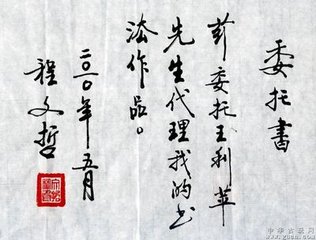 委托書
兹委托王利苹
先生代理我的书
法作品。
二〇一〇年五月
程文哲
中华古玩网